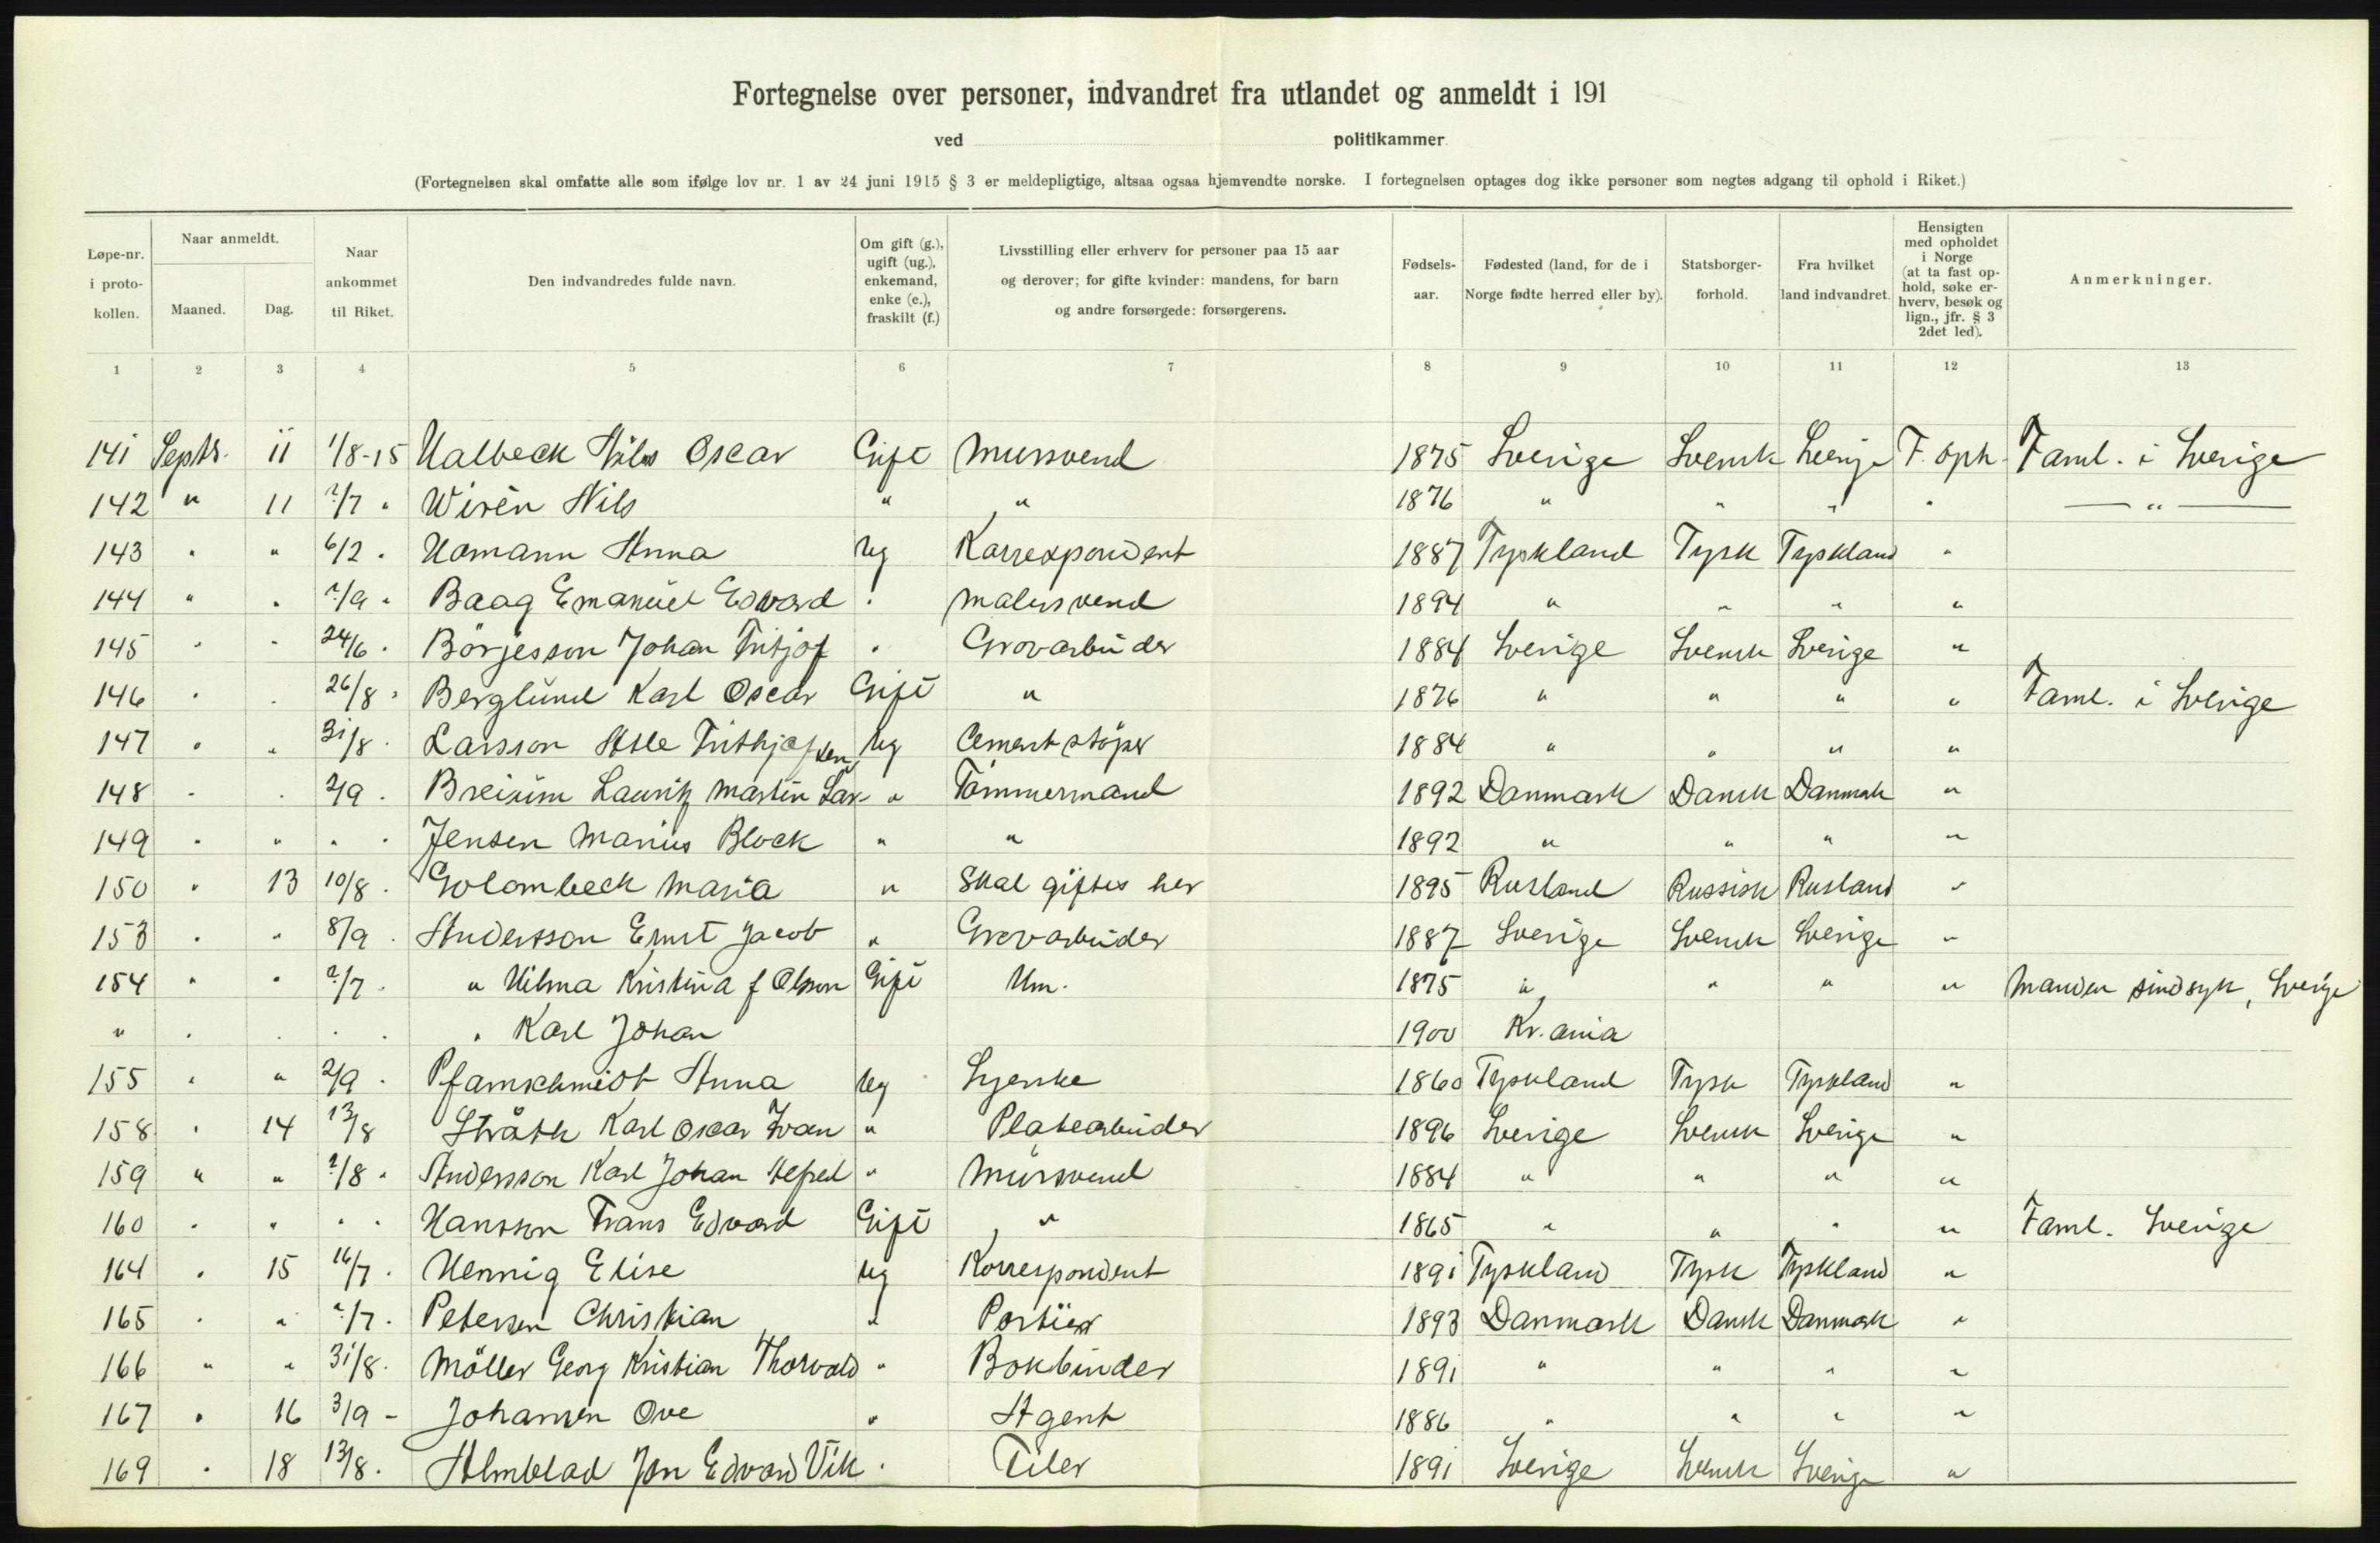 Fortegnelse over personer, indvandret fra utlandet og anmeldt i 191
ved politikammer
(Fortegnelsen skal omfatte alle som ifølge lov nr. 1 av 24 juni 1915 § 3 er meldepligtige, altsaa ogsaa hjemvendte norske. I fortegnelsen optages dog ikke personer som negtes adgang til ophold i Riket.)
Løpe-nr. i proto-kollen.
Naar anmeldt.
Maaned. Dag.
Naar ankommet til Riket.
Den indvandredes fulde navn.
Om gift (g.), ugift (ug.), enkemand, enke (e.), fraskilt (f.)
Livsstilling eller erhverv for personer paa 15 aar og derover; for gifte kvinder: mandens, for barn og andre forsørgede: forsørgerens.
Fødsels-aar.
Fødested (land, for de i Norge fødte herred eller by).
Statsborger-forhold.
Fra hvilket land indvandret.
Hensigten med opholdet i Norge (at ta fast op-hold, søke er-hverv, besøk og lign., jfr. § 3 2det led).
Anmerkninger.
1 2 3 4 5 6 7 8 9 10 11 12 13
141 Septb. 11 1/8-15 Halbeck Nils Oscar Gift Mursvend 1875 Sverige Svensk Sverige F. oph. Faml. i Sverige
142 " 11 ?/7 " Wirén Nils " " 1876 " " " " — " —
143 " " 6/2 " Homann Anna Ug Korrespondent 1887 Tyskland Tysk Tyskland "
144 " " ?/9 " Baag Emanuel Edvard " Malersvend 1894 " " " "
145 " " 24/6 " Börjesson Johan Fritjof " Grovarbeider 1884 Sverige Svensk Sverige "
146 " " 26/8 " Berglund Karl Oscar Gift " 1876 " " " " Faml. i Sverige
147 " " 31/8 " Larsson Atle Frithjof Ug Cementstöper 1884 " " " "
148 " " 2/9 " Breium Lauritz Martin Lar-sen " Tömmermand 1892 Danmark Dansk Danmark "
149 " " " " Jensen Marius Block " " 1892 " " " "
150 " 13 10/8 " Golombeck Maria " Skal giftes her 1895 Rusland Russisk Rusland "
153 " " 8/9 " Andersson Ernst Jacob " Grovarbeider 1887 Sverige Svensk Sverige "
154 " " ?/7 " " Hilma Kristina f Olsson Gift Hm. 1875 " " " " Manden sindsyk, Sverige
" " " " " " Karl Johan 1900 Kr.ania
155 " " 2/9 " Pfannschmidt Anna Ug Syerske 1860 Tyskland Tysk Tyskland "
158 " 14 13/8 Stråth Karl Oscar Ivan " Platearbeider 1896 Sverige Svensk Sverige "
159 " " ?/8 " Andersson Karl Johan Alfred " Mursvend 1884 " " " "
160 " " " " Hansson Frans Edvard Gift " 1865 " " " " Faml. Sverige
164 " 15 16/7 " Hennig Elise Ug Korrespondent 1891 Tyskland Tysk Tyskland "
165 " " ?/7 " Petersen Christian " Portier 1893 Danmark Dansk Danmark "
166 " " 31/8 " Möller Georg Kristian Thorvald " Bokbinder 1891 " " " "
167 " 16 3/9 - Johansen Ove " Agent 1886 " " " "
169 " 18 13/8 " Almblad Jon Edvard Vik " Filer 1891 Sverige Svensk Sverige "